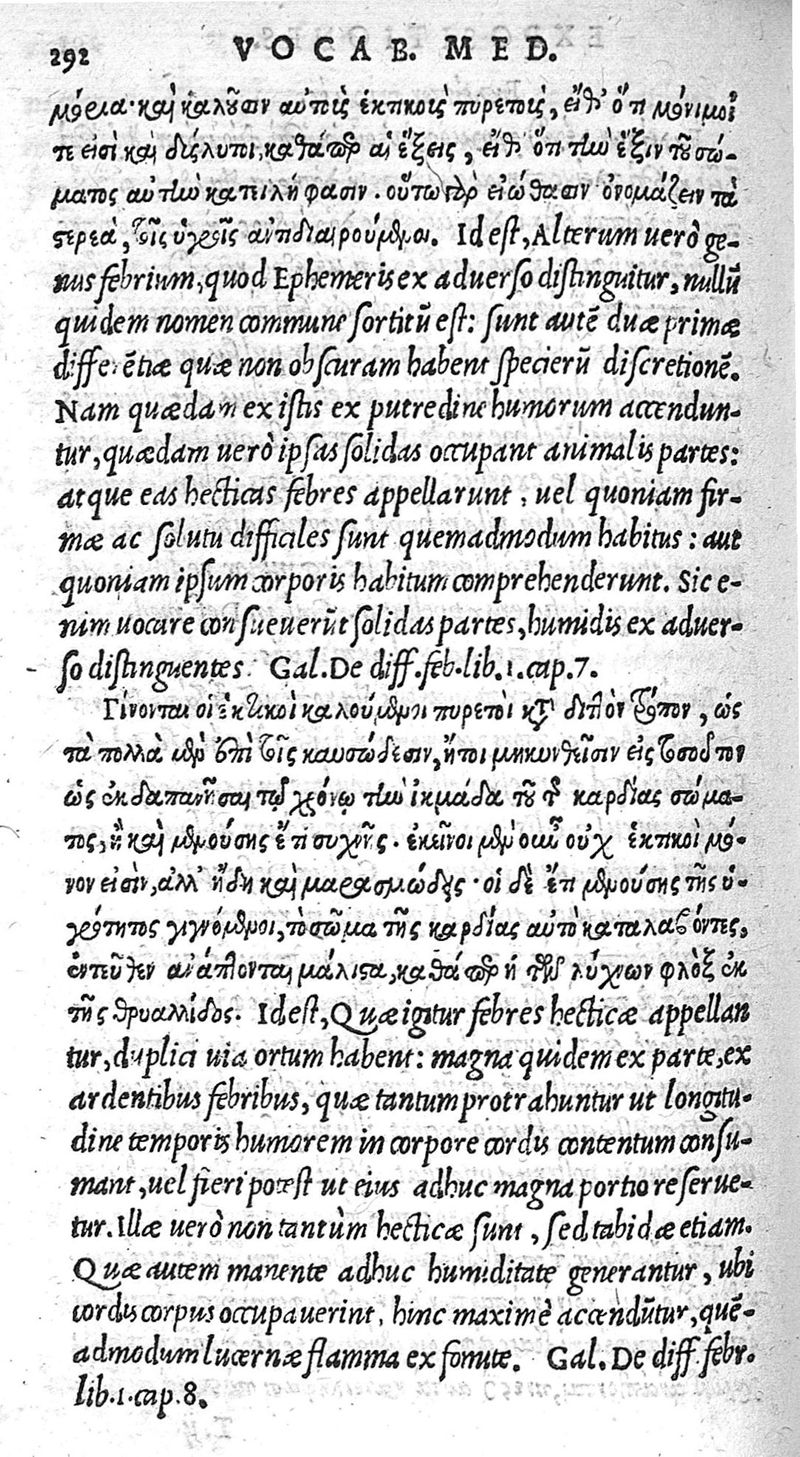 292 VOCAB. MED.
μόρια· καὶ καλοῦσιν αὐτοὺς ἑκτικοὺς πυρετοὺς, εἴθ' ὅτι μόνιμοί
τε εἰσὶ καὶ δύςλυτοι, καθάπερ αἱ ἕξεις, εἴθ' ὅτι τὴν ἕξιν τοῦ σώ-
ματος αὐτὴν κατειλήφασιν. οὕτω γὰρ εἰώθασιν ὀνομάζειν τὰ
στερεὰ, τοῖς ὑγροῖς ἀντιδιαιρούμενοι. Id est, Alterum uerò ge-
nus febrium, quod Ephemeris ex aduerso distinguitur, nullũ
quidem nomen commune sortitũ est: sunt autẽ duæ primæ
differẽtiæ quæ non obscuram habent specierũ discretionẽ.
Nam quædam ex istis ex putredine humorum accendun-
tur, quædam uerò ipsas solidas occupant animalis partes:
atque eas hecticas febres appellarunt, uel quoniam fir-
mæ ac solutu difficiles sunt quemadmodum habitus: aut
quoniam ipsum corporis habitum comprehenderunt. Sic e-
nim uocare consueuerũt solidas partes, humidis ex aduer-
so distinguentes. Gal. De diff. feb. lib. 1. cap. 7.
Γίνονται οἱ ἑκτικοὶ καλούμενοι πυρετοὶ κατὰ διττὸν τρόπον, ὡς
τὰ πολλὰ μὲν ἐπὶ τοῖς καυσώδεσιν, ἤτοι μηκυνθεῖσιν εἰς τοσοῦτον
ὡς ἐκδαπανῆσαι τῷ χρόνῳ τὴν ἰκμάδα τοῦ τῆς καρδίας σώμα-
τος, ἢ καὶ μενούσης ἔτι συχνῆς. ἐκεῖνοι μὲν οὖν οὐχ ἑκτικοὶ μό-
νον εἰσὶν, ἀλλ' ἤδη καὶ μαρασμώδεις· οἱ δὲ ἔτι μενούσης τῆς ὑ-
γρότητος γιγνόμενοι, τὸ σῶμα τῆς καρδίας αὐτὸ καταλαβόντες,
ἐντεῦθεν ἀνάπτονται μάλιστα, καθάπερ ἡ τῶν λύχνων φλὸξ ἐκ
τῆς θρυαλλίδος. Id est, Quæ igitur febres hecticæ appellan
tur, duplici uia ortum habent: magna quidem ex parte, ex
ardentibus febribus, quæ tantum protrahuntur ut longitu-
dine temporis humorem in corpore cordis contentum consu-
mant, uel fieri potest ut eius adhuc magna portio reserue-
tur. Illæ uerò non tantùm hecticæ sunt, sed tabidæ etiam.
Quæ autem manente adhuc humiditate generantur, ubi
cordis corpus occupauerint, hinc maximè accendũtur, quẽ-
admodum lucernæ flamma ex fomite. Gal. De diff. febr.
lib. 1. cap. 8.